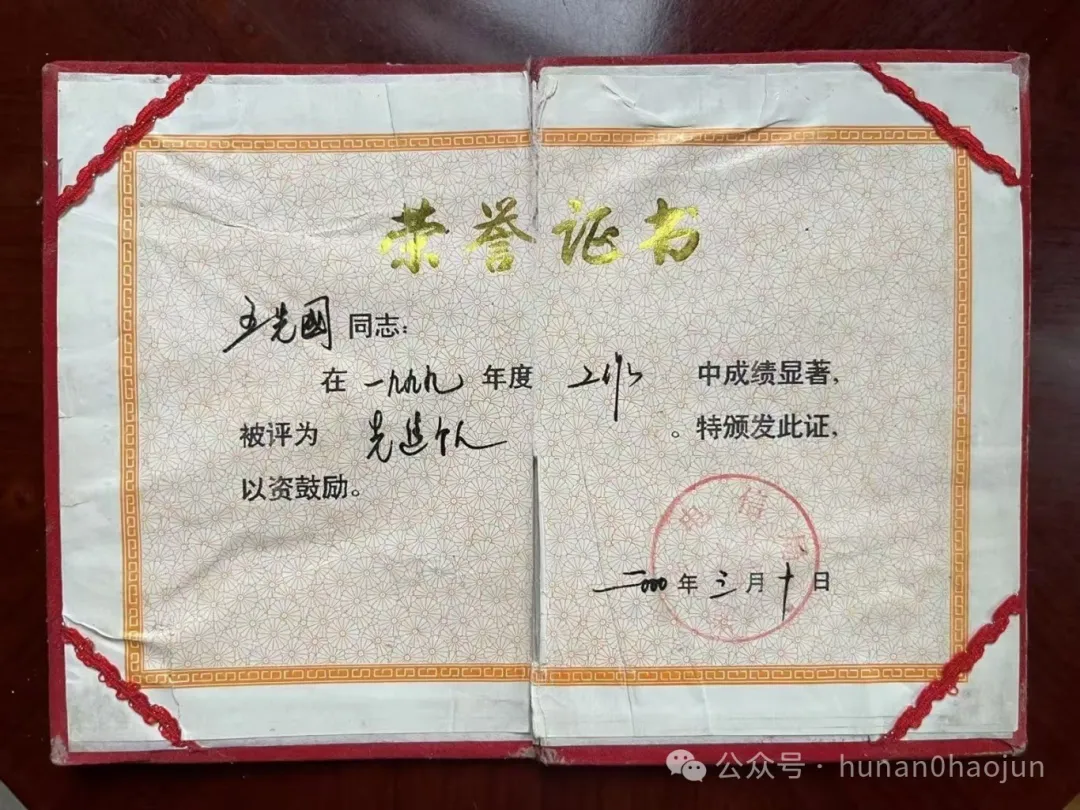 荣誉证书
王先国同志：
在一九九九年度工作中成绩显著，
被评为先进个人。特颁发此证，
以资鼓励。
电信
二000年三月十日
公众号·hunan0haojun